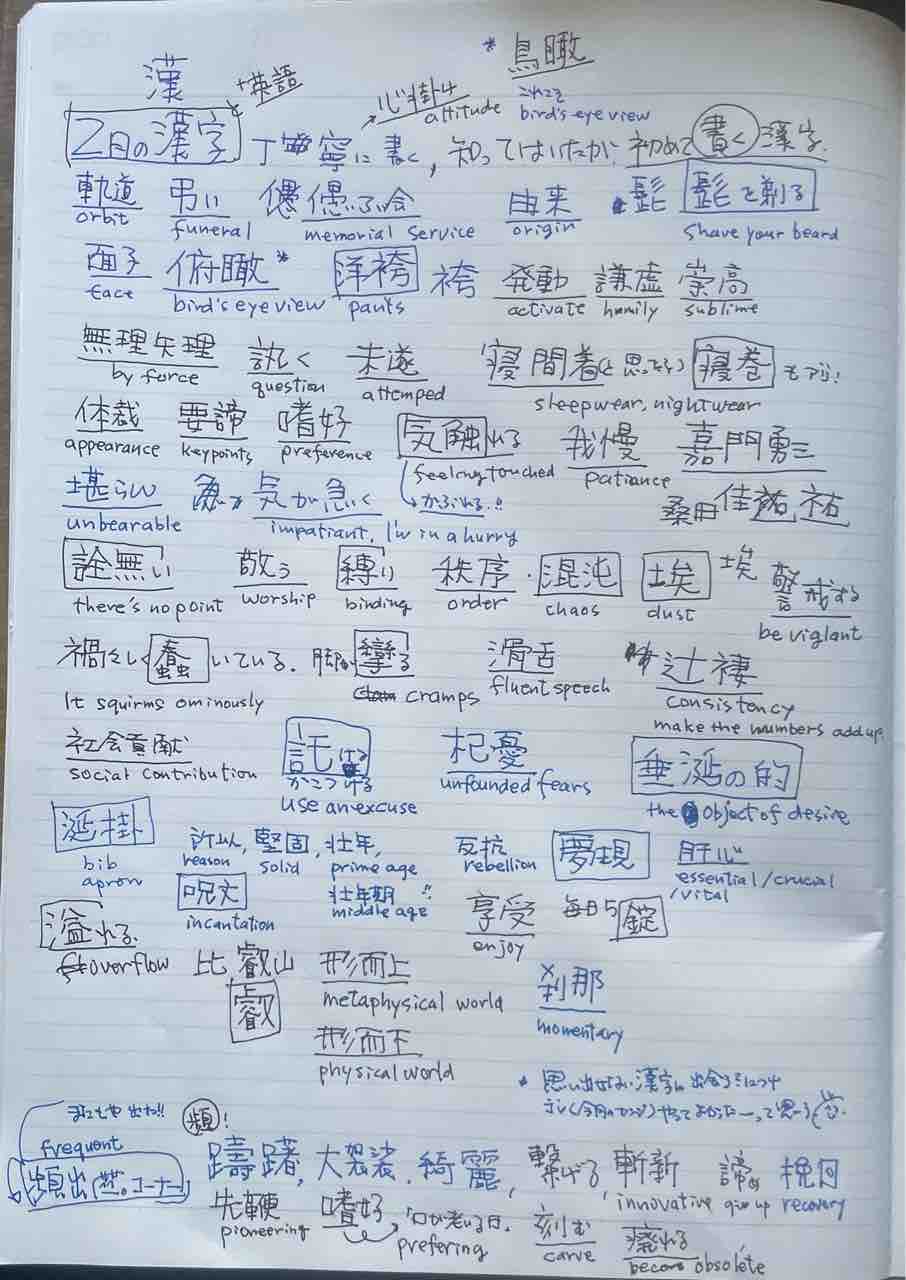 漢 +英語 * 鳥瞰
心掛け attitude これこそ bird's eye view
2月の漢字 丁寧に書く,知ってはいたが,初めて書く漢字.
軌道 弔い 偲 偲ぶ会 由来 髭 髭を剃る
orbit funeral memorial service origin shave your beard
面子 俯瞰* 洋袴 袴 発動 謙虚 崇高
face bird's eye view pants activate humily sublime
無理矢理 訊く 未遂 寝間着(と思ってたら) 寝巻 もアリ!
by force question attemped sleepwear, nightwear
体裁 要諦 嗜好 気触れる 我慢 嘉門勇三
appearance keypoints preference feeling touched patiance
堪らん 気が急く かぶれる!! 桑田佳祐 祐
unbearable impatiant, I'm in a hurry
詮無い 敬う 縛り 秩序・混沌 埃 埃 警戒する
there's no point worship binding order chaos dust be viglant
禍々しく蠢いている. 脚が攣る 滑舌 辻褄
It squirms ominously cramps fluent speech consistency
make the numbers add up.
社会貢献 託ける 杞憂 垂涎の的
social contribution かこつける unfounded fears
use an excuse the object of desire
涎掛 所以, 堅固, 壮年, 反抗 夢現 肝心
bib apron reason solid prime age rebellion essential/crucial /vital
呪文 壮年期!! 享受 毎日5錠
incantation middle age enjoy
溢れる. 比叡山 形而上 刹那
overflow 叡 metaphysical world momentary
形而下
physical world
* 思い出せない漢字に出会うたびに
またもや出た!! 頻!
frequent
頻出(芝。コーナー) 躊躇, 大袈裟, 綺麗, 繋げる, 斬新 諦め 挽回
innovative give up recovery
先鞭 嗜好 刻む 廃れる
pioneering prefering carve become obsolete